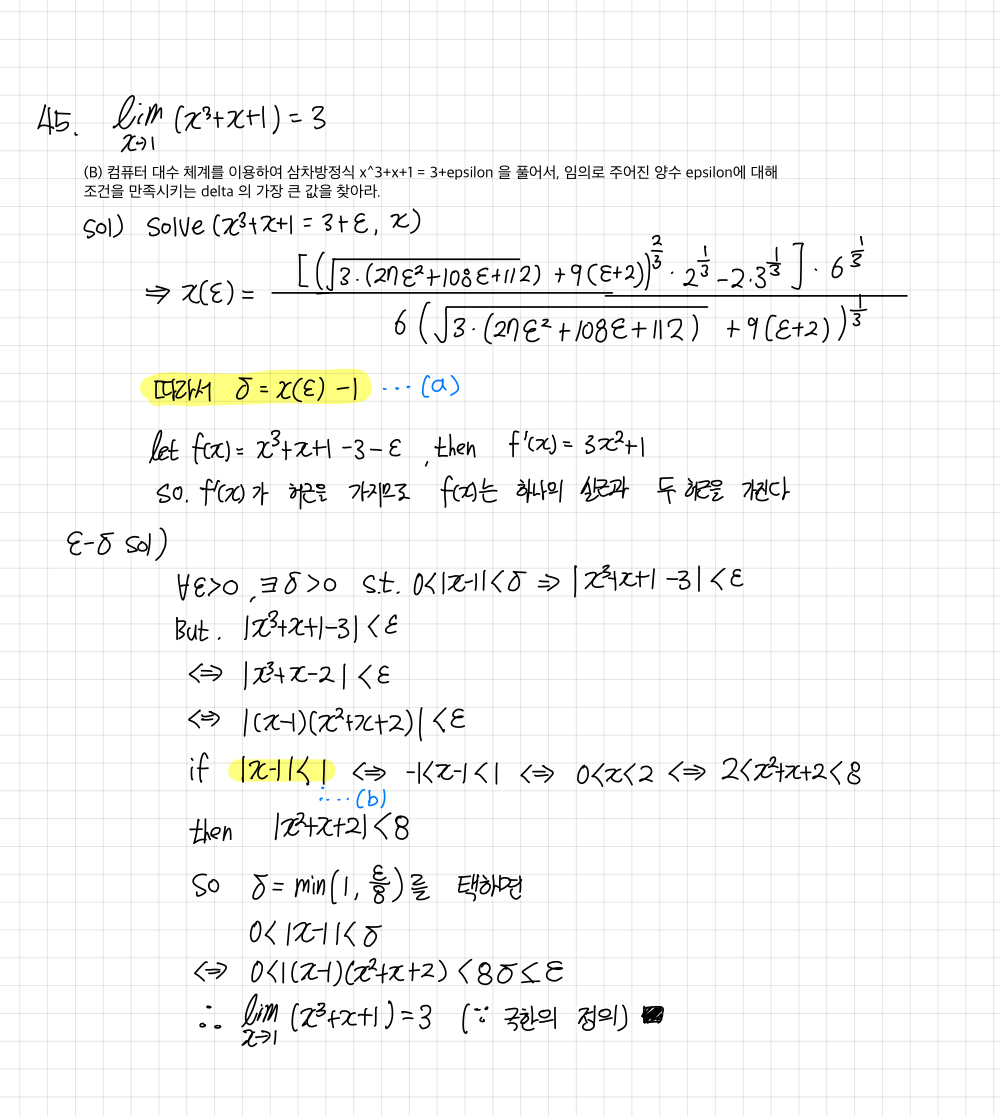 45. lim (x³+x+1) = 3
x→1
(B) 컴퓨터 대수 체계를 이용하여 삼차방정식 x^3+x+1 = 3+epsilon 을 풀어서, 임의로 주어진 양수 epsilon에 대해
조건을 만족시키는 delta 의 가장 큰 값을 찾아라.
sol) solve (x³+x+1 = 3+ε, x)
⇒ x(ε) = [(√(3·(27ε²+108ε+112)) +9(ε+2))^(2/3) · 2^(1/3) - 2·3^(1/3)] · 6^(1/3) / 6(√(3·(27ε²+108ε+112)) +9(ε+2))^(1/3)
따라서 δ = x(ε) -1 ... (a)
let f(x) = x³+x+1 -3-ε , then f'(x) = 3x²+1
so. f'(x)가 허근을 가지므로 f(x)는 하나의 실근과 두 허근을 가진다
ε-δ sol)
∀ε>0, ∃δ>0 s.t. 0<|x-1|<δ ⇒ |x³+x+1-3|<ε
But. |x³+x+1-3|<ε
⇔ |x³+x-2|<ε
⇔ |(x-1)(x²+x+2)|<ε
if |x-1|<1 ⇔ -1<x-1<1 ⇔ 0<x<2 ⇔ 2<x²+x+2<8
∴...(b)
then |x²+x+2|<8
So δ = min(1, ε/8)를 택하면
0<|x-1|<δ
⇔ 0<|(x-1)(x²+x+2) <8δ≤ε
∴ lim (x³+x+1) = 3 (∵ 극한의 정의)
x→1